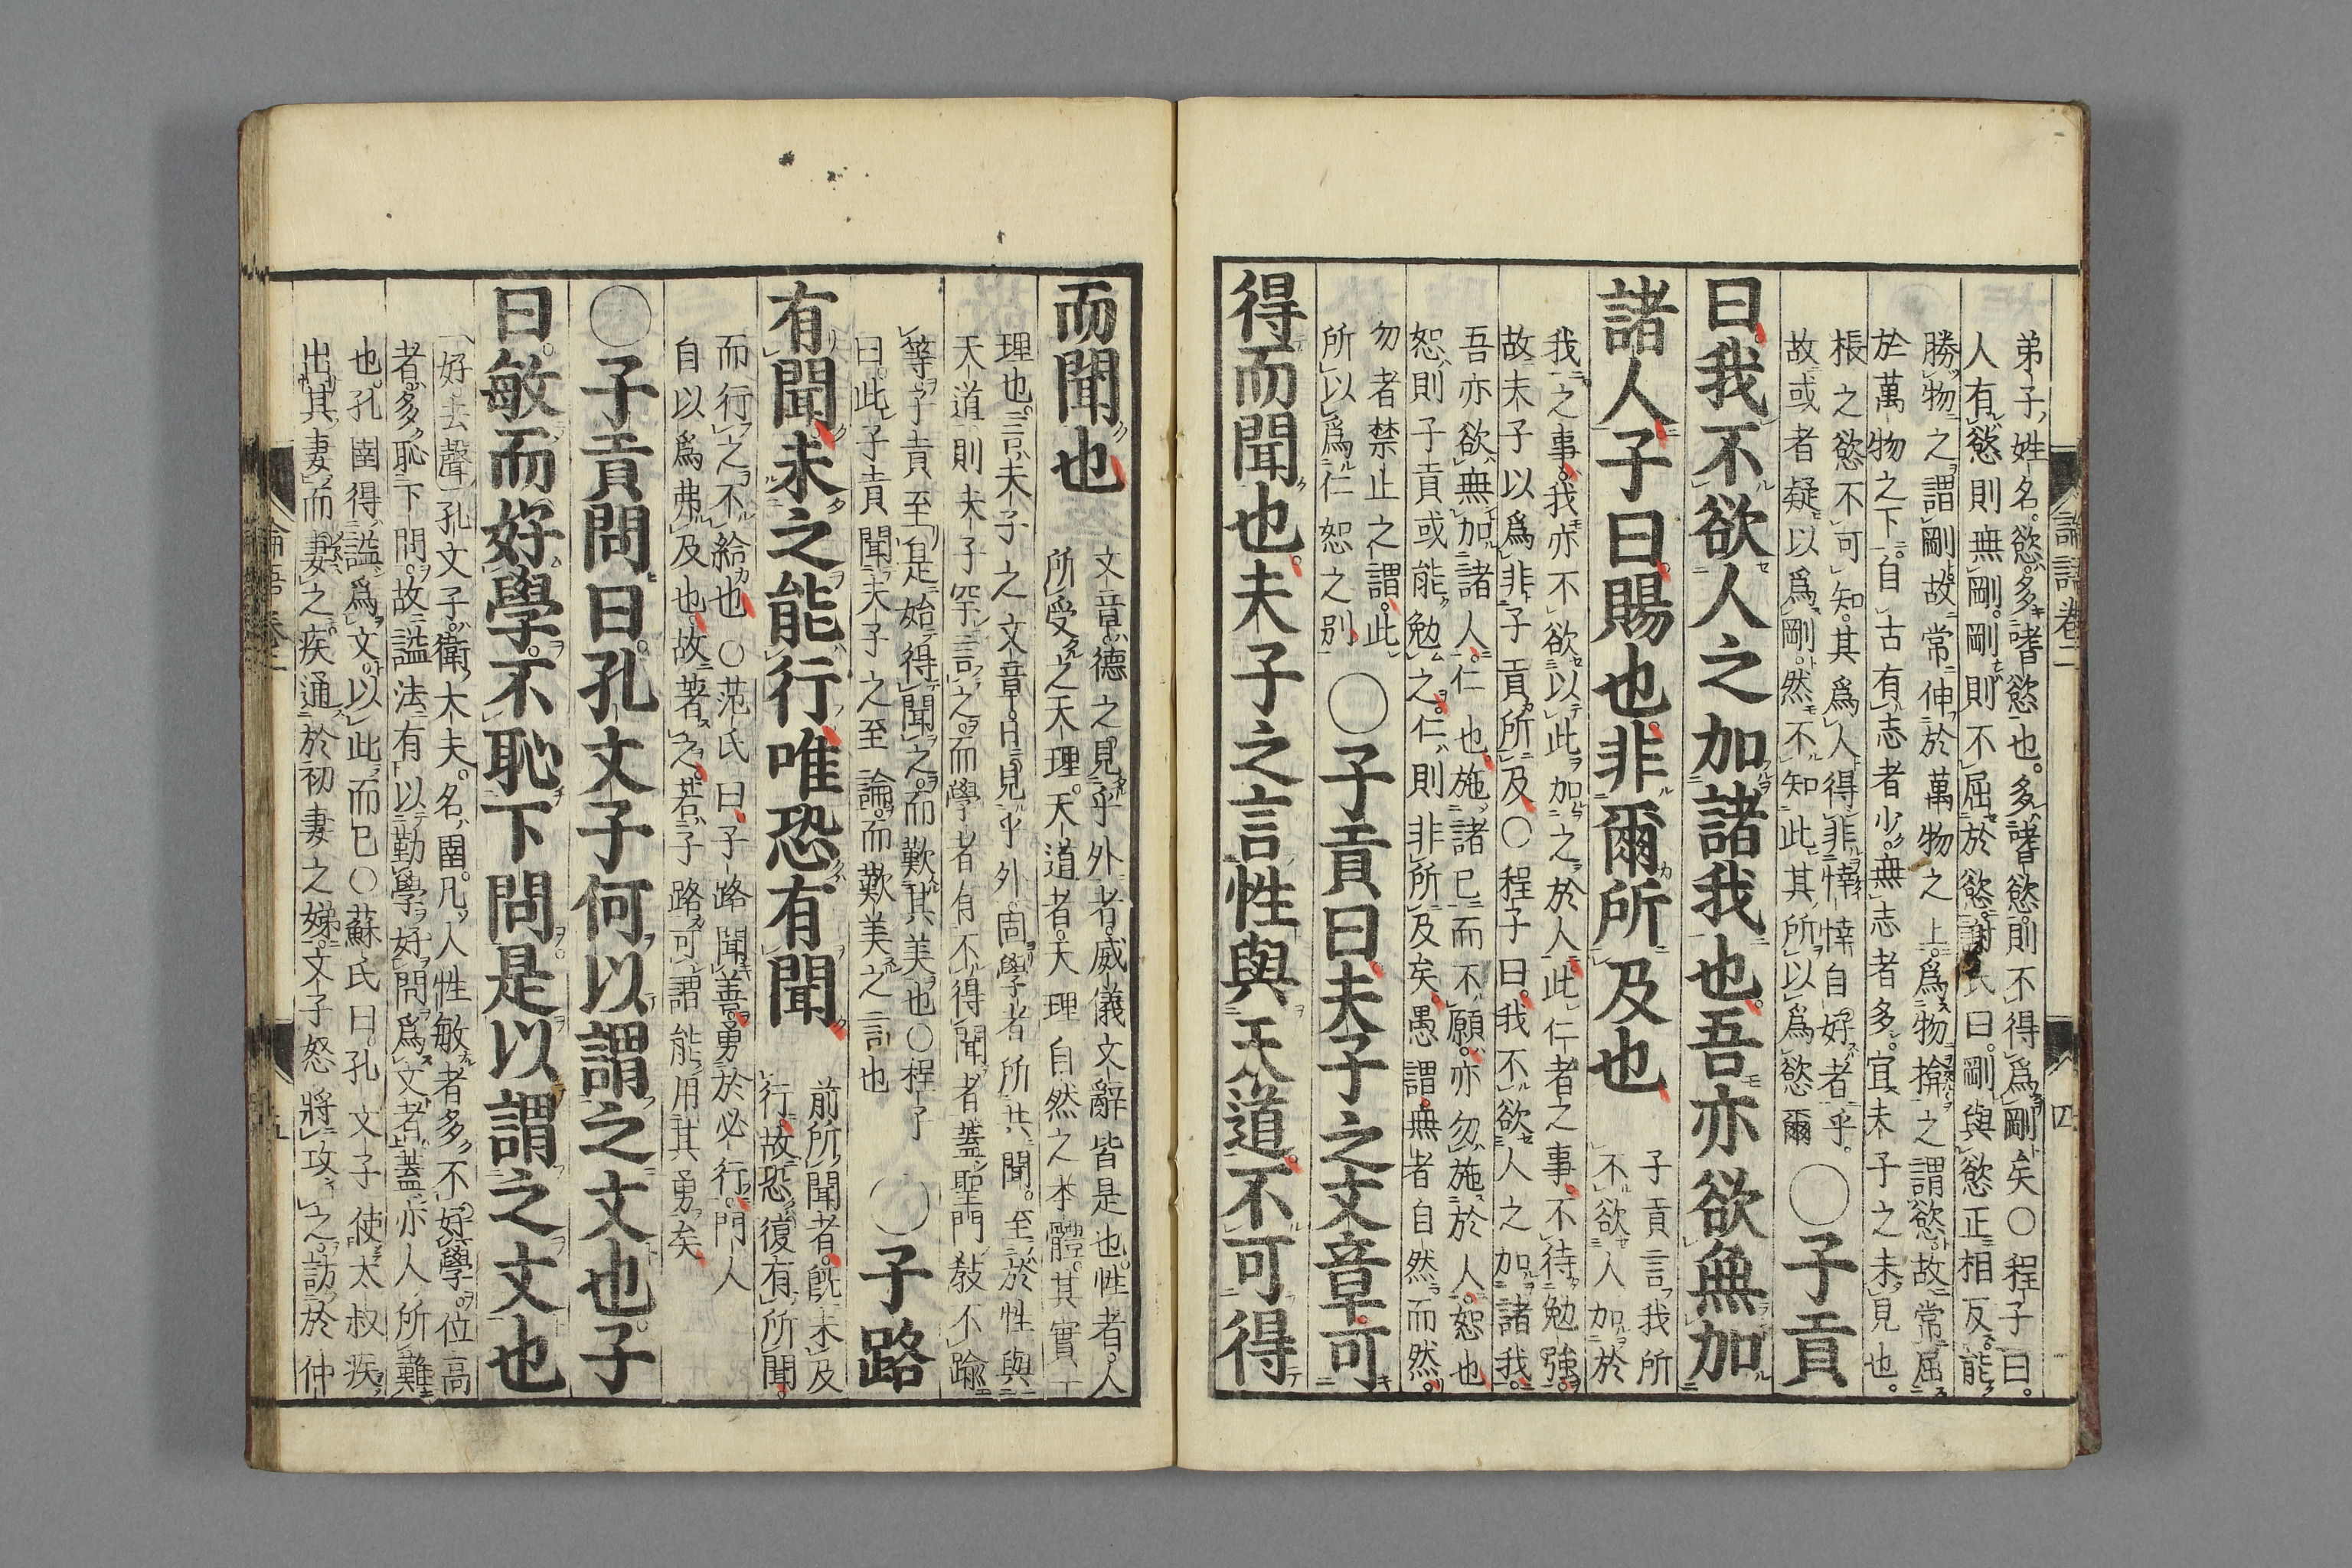 論語卷二
四
弟子姓名慾多嗜慾也多嗜慾則不得爲剛矣○程子曰
人有慾則無剛剛則不屈於慾謝氏曰剛與慾正相反能
勝物之謂剛故常伸於萬物之上爲物揜之謂慾故常屈
於萬物之下自古有志者少無志者多宜未子之未見也
棖之慾不可知其爲人得非悻悻自好者乎
故或者疑以爲剛然不知此其所以爲慾爾
○子貢
曰我不欲人之加諸我也吾亦欲無加
諸人子曰賜也非爾所及也
子貢言我所
不欲人加於
我之事我亦不欲以此加之於人此仁者之事不待勉強
故夫子以爲非子貢所及○程子曰我不欲人之加諸我
吾亦欲無加諸人仁也施諸己而不願亦勿施於人恕也
恕則子貢或能勉之仁則非所及矣愚謂無者自然而然
勿者禁止之謂此
所以爲仁恕之別
○子貢曰夫子之文章可
得而聞也夫子之言性與天道不可得
而聞也
文章德之見乎外者威儀文辭皆是也性者人
所受之天理天道者天理自然之本體其實一
理也言夫子之文章日見乎外固學者所共聞至於性與
天道則夫子罕言之而學者有不得聞者蓋聖門敎不躐
等子貢至是始得聞之而歎其美也○程子
曰此子貢聞夫子之至論而歎美之言也
○子路
有聞未之能行唯恐有聞
前所聞者旣未及
行故恐復有所聞
而行之不給也○范氏曰子路聞善勇於必行門人
自以爲弗及也故著之若子路可謂能用其勇矣
○子貢問曰孔文子何以謂之文也子
曰敏而好學不恥下問是以謂之文也
好去聲孔文子衛大夫名圉凡人性敏者多不好學位高
者多恥下問故謚法有以勤學好問爲文者蓋亦人所難
也孔圉得謚爲文以此而已○蘇氏曰孔文子使太叔疾
出其妻而妻之疾通於初妻之娣文子怒將攻之訪於仲
論語卷二
五